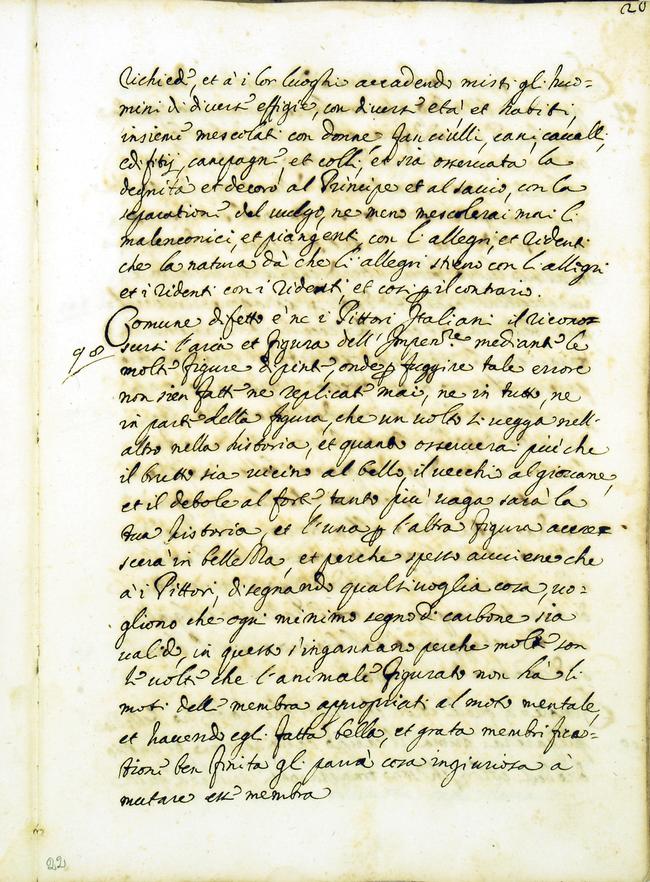 20
richied., et à i lor luoghi accadendo misti gli huo=
mini di divers. effigie, con divers. età, et habiti,
insieme mescolati con donne, fanciulli, cani, cavalli,
edifitij, campagn., et colli, et sia osservata la
degnità et decoro al Principe et al savio, con la
separation. del vulgo, ne meno mescolerai mai li
malenconici, et piangenti con l'allegri, et ridenti
che la natura dà che li allegri stieno con l'allegri
et i ridenti con i ridenti, et cosi p il contrario.
98 Comune difetto è ne i Pittori Italiani il ricono=
scersi l'aria et figura dell' mediante le
molte figure dipint., onde p fuggire tale errore
non sien fatti ne replicat. mai, ne in tutto, ne
in parte della figura, che un volto si vegga nell'
altro nella historia, et quanto osserverai più che
il brutto sia vicino al bello, il vecchio al giovane,
et il debole al forte, tanto più vaga sarà la
tua historia, et l'una p l'altra figura accre=
scerà in bellezza, et perche spesso avviene che
à i Pittori, disegnando qualsivoglia cosa, vo=
gliono che ogni minimo segno di carbone sia
valido, in questo s'ingannano perche molte son
le volte che l'animale figurato non hà li
moti delle membra appropriati al moto mentale,
et havendo egli fatta bella, et grata membrifica=
tione ben finita gli parrà cosa ingiuriosa à
mutare esse membra
22